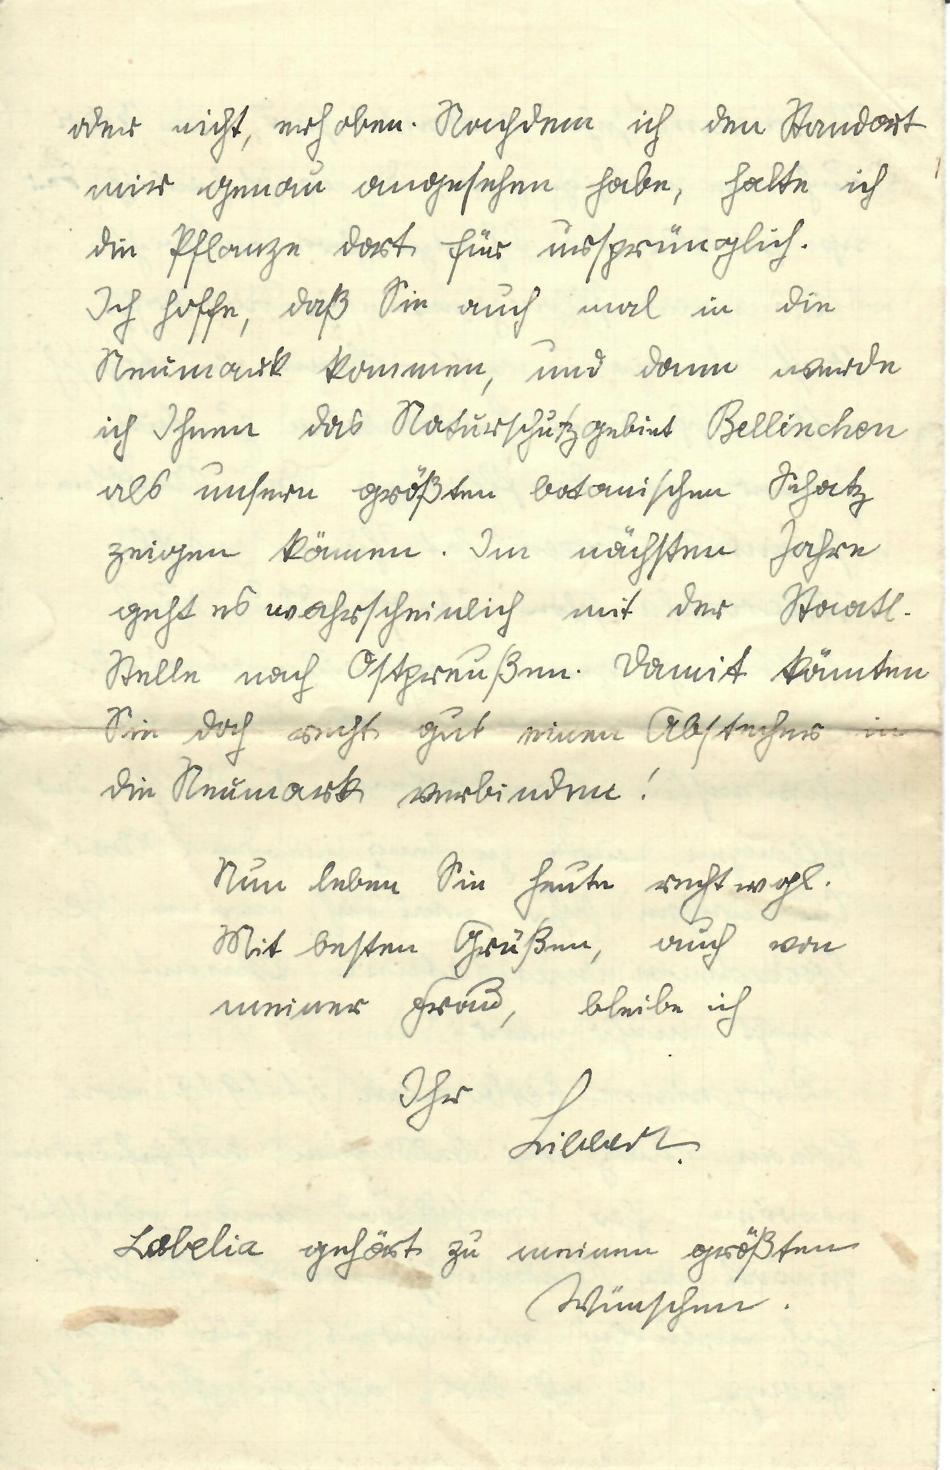 oder nicht, erhoben. Nachdem ich den Standort
mir genau angesehen habe, halte ich
die Pflanze dort für ursprünglich.
Ich hoffe, daß Sie auch mal in die
Neumark kommen, und dann werde
ich Ihnen das Naturschutzgebiet Bellinchen
als unsern größten botanischen Schatz
zeigen können. Im nächsten Jahre
geht es wahrscheinlich mit der Staatl.
Stelle nach Ostpreußen. Damit könnten
Sie doch recht gut einen Abstecher in
die Neumark verbinden!
Nun leben Sie heute recht wohl.
Mit besten Grüßen, auch von
meiner Frau, bleibe ich
Ihr
Libbert.
Lobelia gehört zu meinen größten
Wünschen.